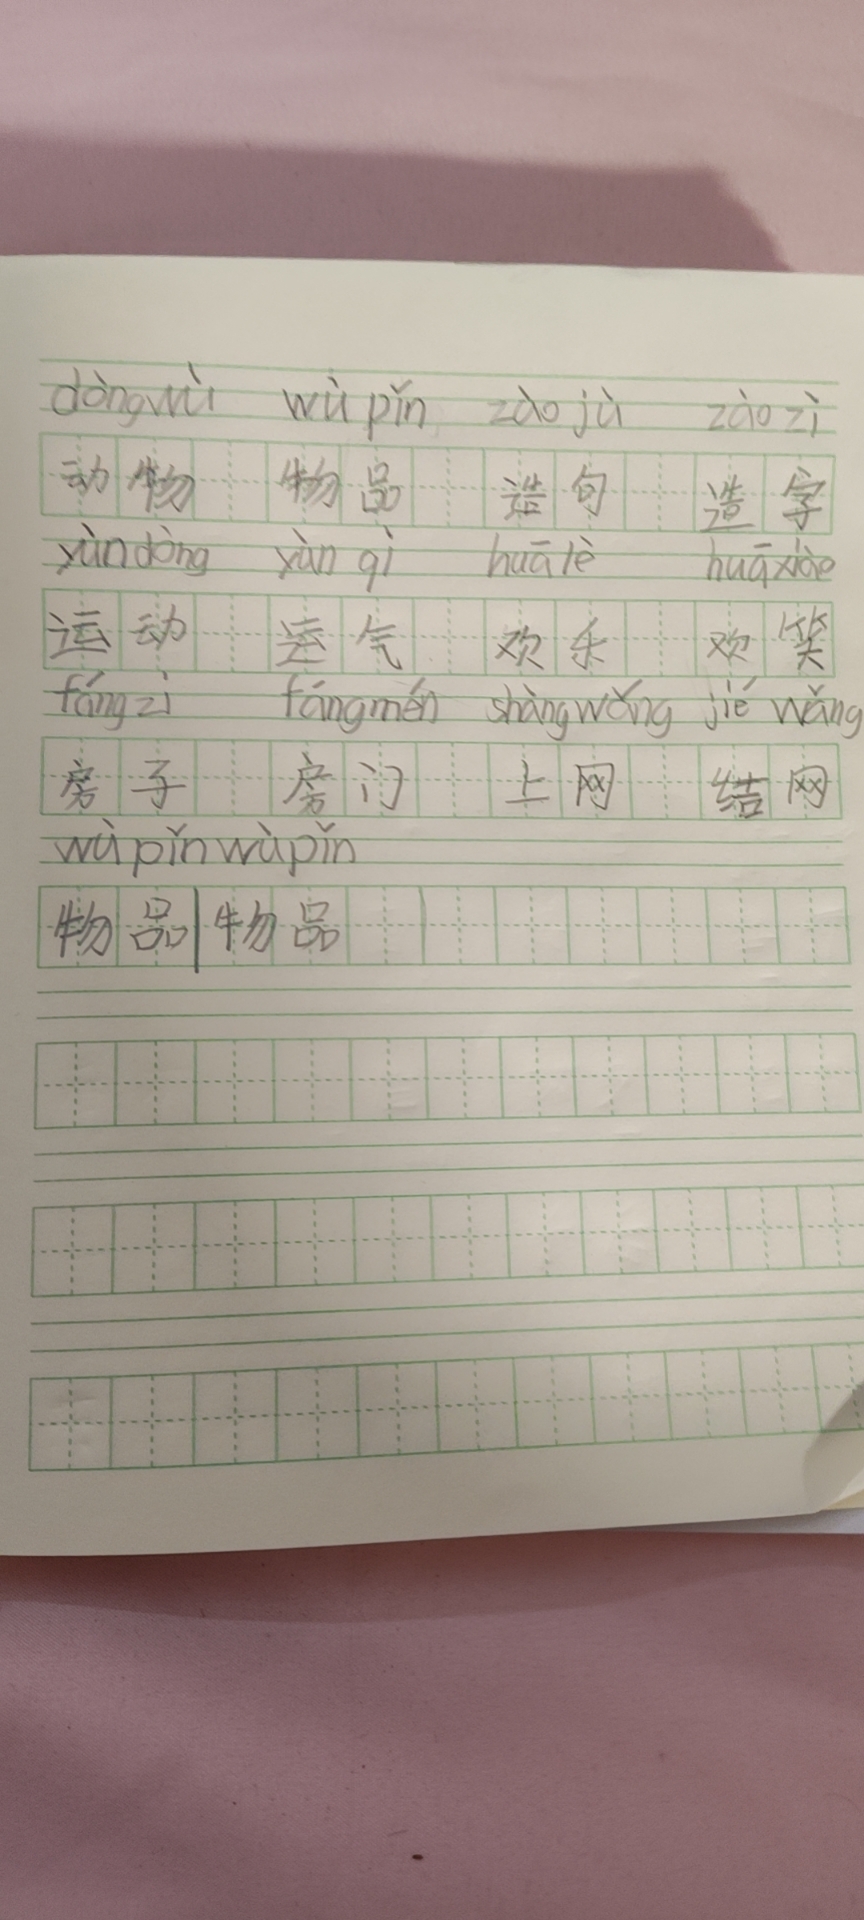 dòngwù wùpǐn zàojù zàozì
动物 物品 造句 造字
yùndòng yùnqì huālè huāxiào
运动 运气 欢乐 欢笑
fángzi fángmén shàngwǎng jiéwǎng
房子 房门 上网 结网
wùpǐnwùpǐn
物品|物品